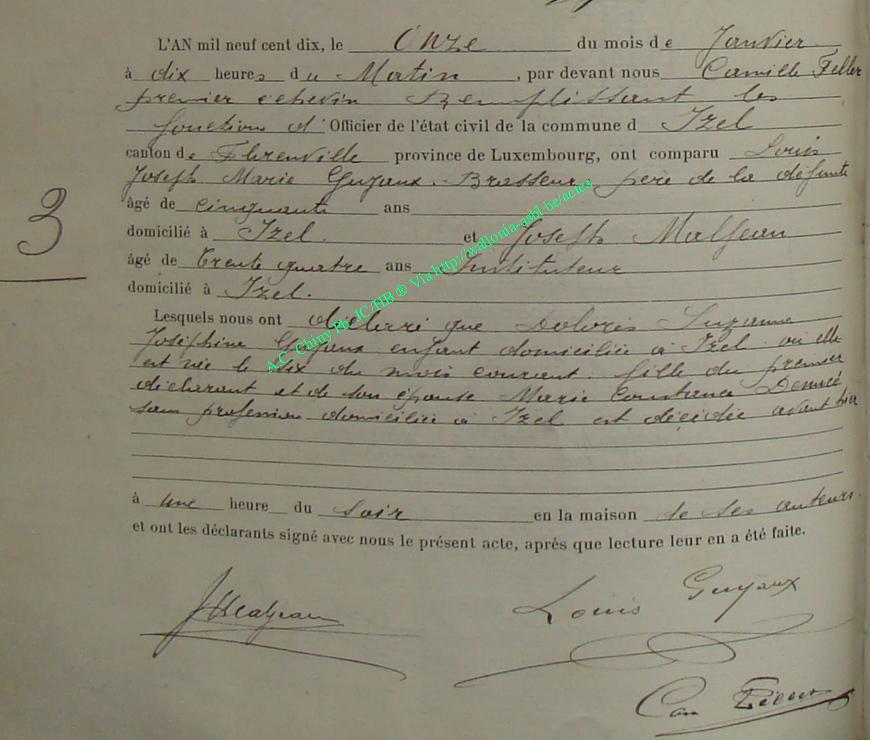 L'AN mil neuf cent dix, le Onze du mois de Janvier
à dix heures du Matin, par devant nous Camille Feller
premier échevin Remplissant les
fonctions d' Officier de l'état civil de la commune d Izel
canton de Florenville province de Luxembourg, ont comparu Louis
Joseph Marie Guyaux. Brasseur, père de la défunte
âgé de cinquante ans
domicilié à Izel. et Joseph Maljean
âgé de trente quatre ans Instituteur
domicilié à Izel.
Lesquels nous ont déclaré que Dolorès Suzanne
Joséphine Guyaux enfant domiciliée à Izel où elle
est née le six du mois courant. fille du premier
déclarant et de son épouse Marie Constance
sans profession domiciliée à Izel est décédée avant hier
à une heure du soir en la maison de ses auteurs.
et ont les déclarants signé avec nous le présent acte, après que lecture leur en a été faite.
3
A.C. Chiny Ph JC/HB ® Via http://wallonia-asbl.be/actes
J Maljean
Louis Guyaux
Cam Feller